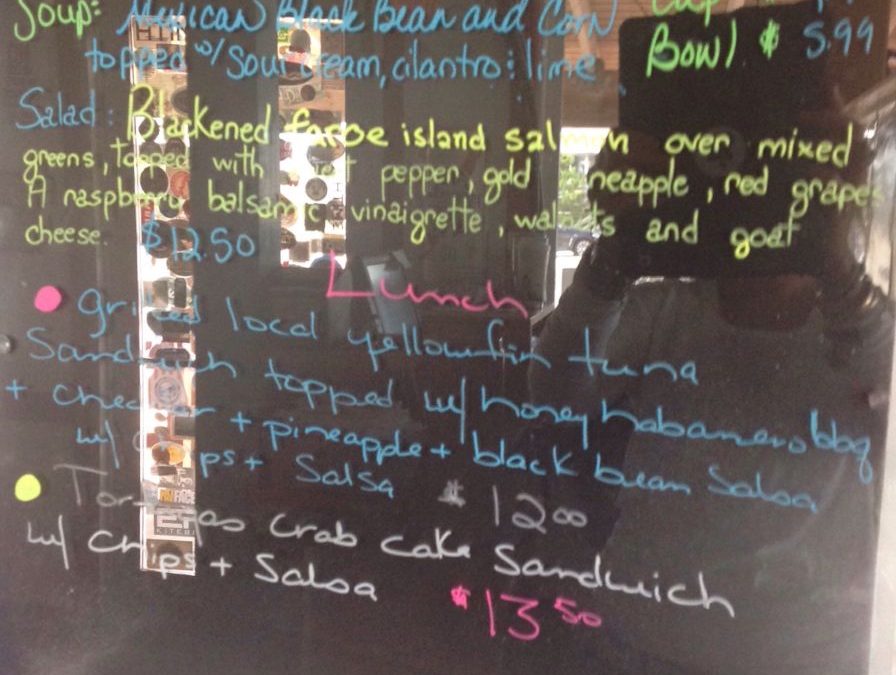 Soup: Mexican Black Bean and Corn Cup
topped w/ Sour Cream, cilantro : lime Bowl $ 5.99
Salad: Blackened faroe island salmon over mixed
greens, topped with pepper, gold pineapple, red grapes
A raspberry balsamic vinaigrette, walnuts and goat
cheese. $12.50
Lunch
grilled local yellowfin tuna
Sandwich topped w/ honey habanero bbq
+ cheddar + pineapple + black bean Salsa
w/ chips + Salsa $ 12 00
Tortugas Crab Cake Sandwich
w/ Chips + Salsa $ 13 50